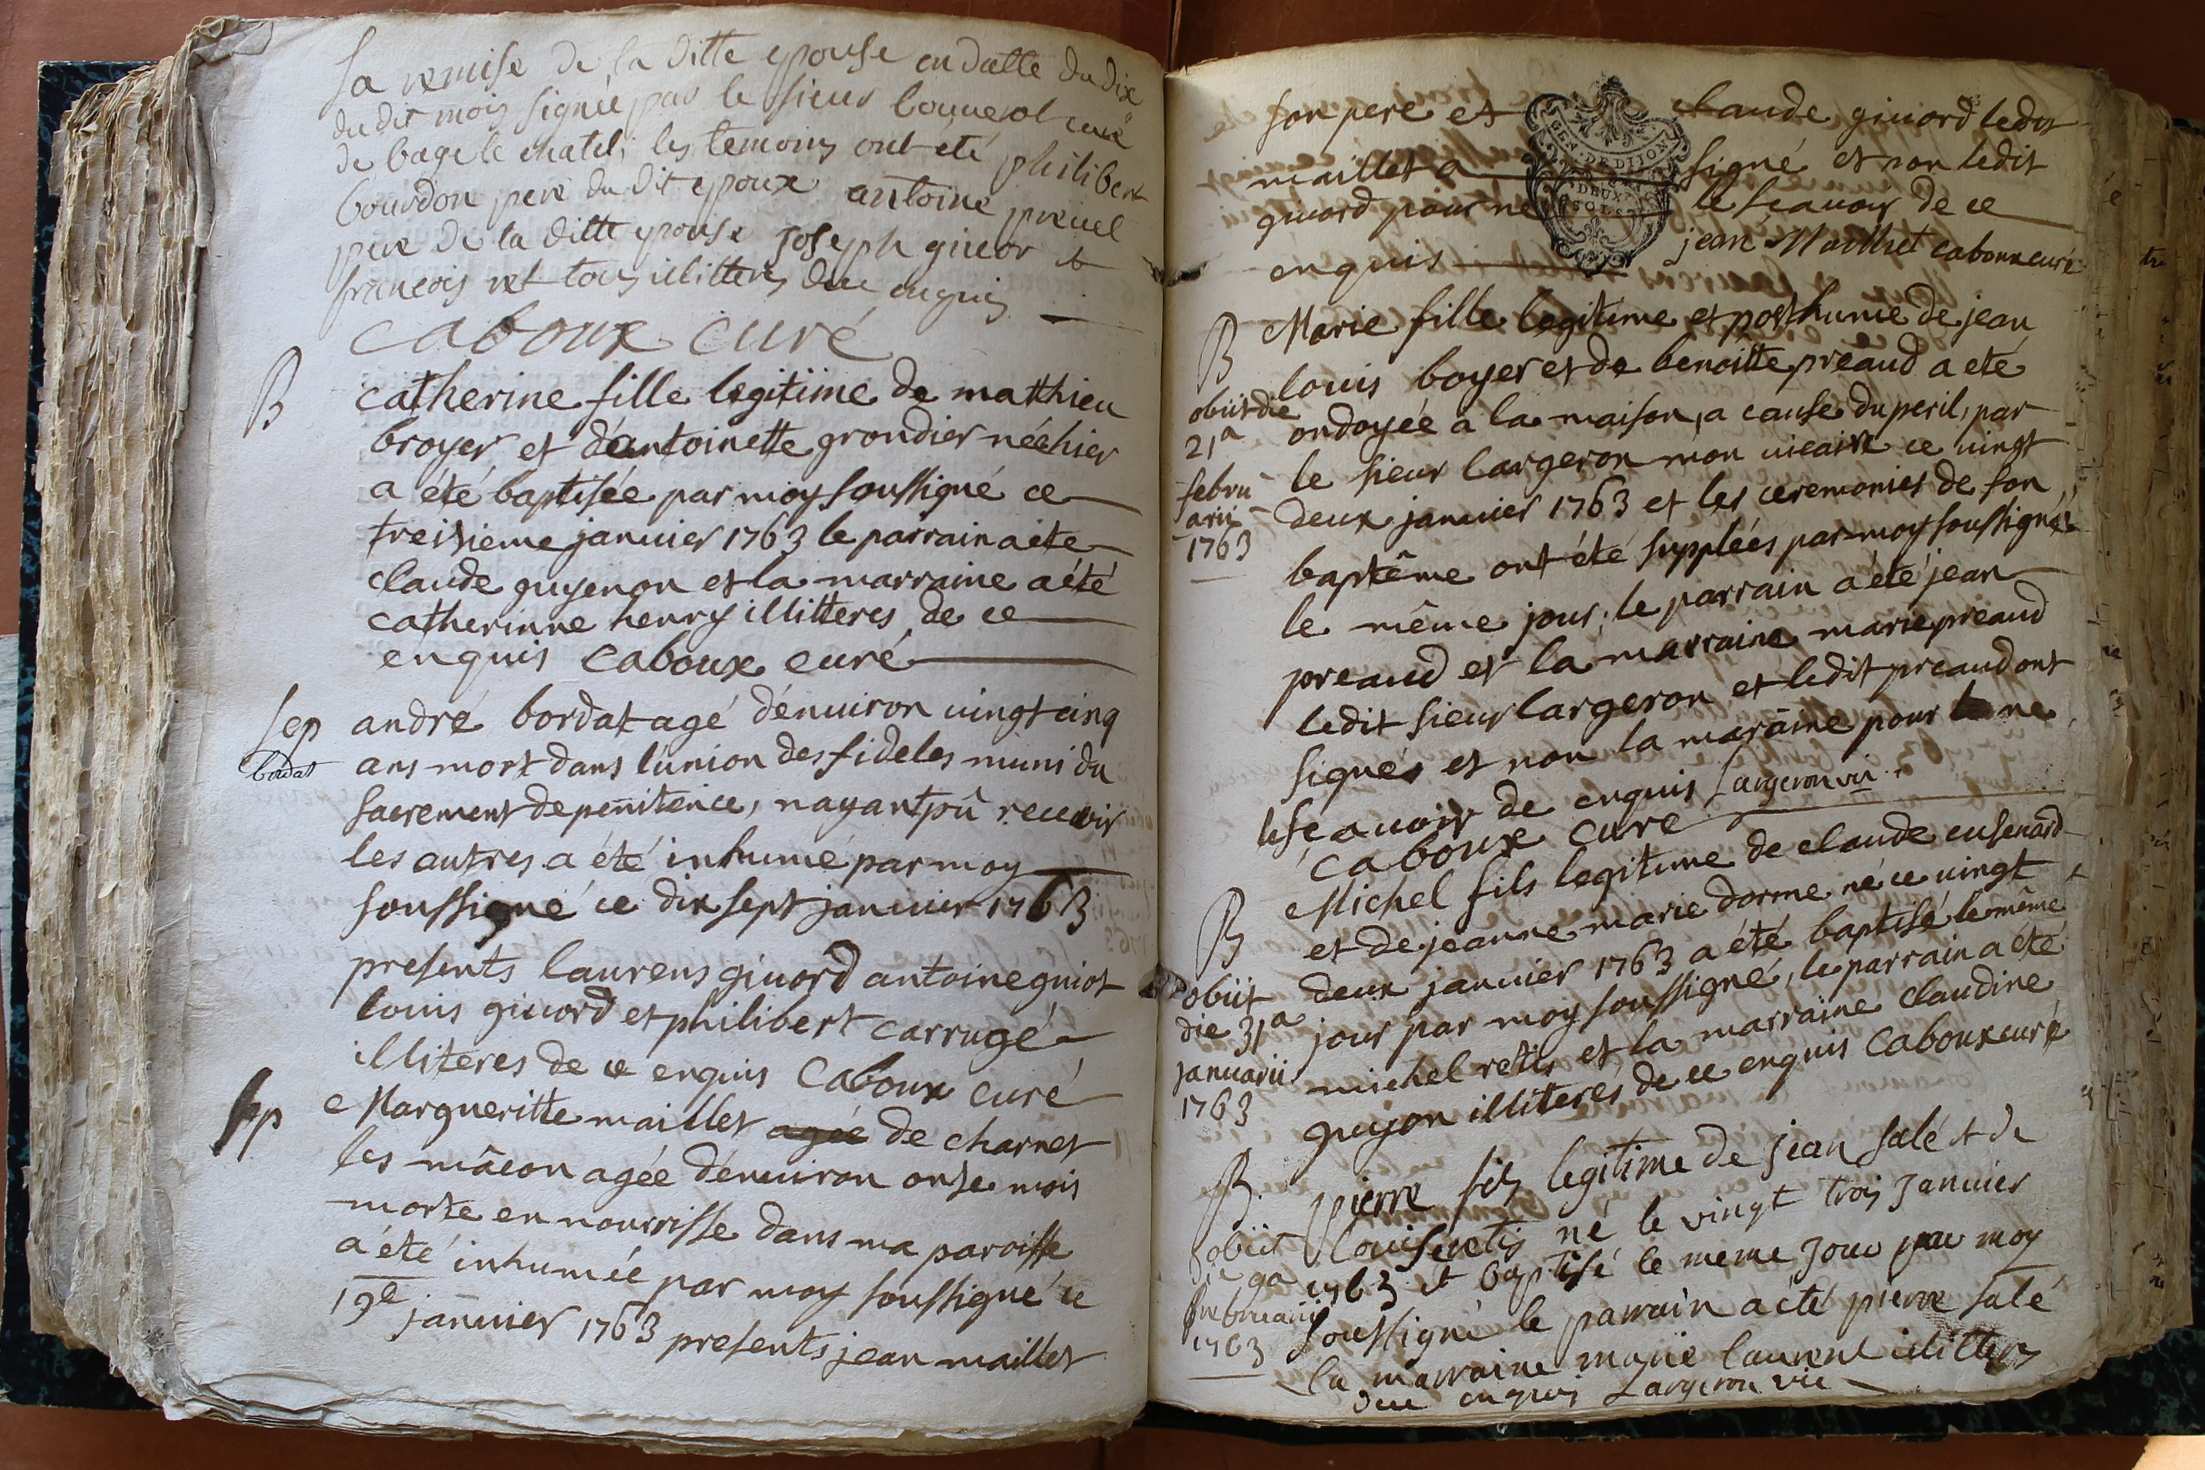 la remise de la ditte epouse en datte du dix
du dit mois signée par le sieur bouverot curé
de bagé le chatel; les temoins ont été philibert
bourdon pere du dit epoux antoine
pere de la ditte epouse joseph givor et
françois ret tous illitters duë enquis
caboux curé
B
catherine fille legitiime de matthieu
broyer et d'antoinette grondier née hier
a été baptisée par moy soussigné ce
treisieme januier 1763 le parrain a été
claude guyenon et la marraine a été
catherinne henry illitteres de ce
enquis caboux curé
Sep
bordat
andré bordat agé dénuiron uingt cinq
ans mort dans l'union des fideles muni du
sacrement de penitence, nayant pû receuoir
les autres a été inhumé par moy
soussigné ce dix sept januier 1763
presents laurens giuord antoine guiot
louis giuord et philibert carrugé
illiteres de ce enquis Caboux curé
Sep
Margueritte maillet agée de charnet
les mâcon agée dénuiron onse mois
morte en nourrisse dans ma paroisse
a été inhumée par moy soussigné ce
19e januier 1763 presents jean maillet
son pere et claude giuord ledit
maillet a signé et non ledit
giuord pour ne le sçauoir de ce
enquis jean Maillet caboux curé
GEN. DE DIJON
DEUX
SOLS
B
obiit die
21a
febru
arii
1763
Marie fille legitime et posthume de jean
louis boyer et de benoitte preaud a eté
ondoyée a la maison, a cause du peril, par
le sieur largeron mon uicaire ce uingt
deux januier 1763 et les ceremonies de son
baptême ont été supplées par moy soussigné
le même jour; le parrain a été jean
preaud et la marraine marie preaud
ledit sieur largeron et ledit preaud ont
signés et non la maraine pour ne
le sçauoir de enquis Largeron vic
Caboux curé
B
obiit
die 31a
januarii
1763
Michel fils legitime de claude cusenard
et de jeanne marie dorme né ce uingt
deux januier 1763 a été baptisé le même
jour par moy soussigné, le parrain a été
michel retis et la marraine claudine
guyon illiteres de ce enquis Caboux curé
B
obiit
die 9a
februarii
1763
pierre fils legitime de jean salé et de
louise retis né le vingt trois januier
1763 et baptisé le meme jour par moy
soussigné le parrain a été pierre salé
la marraine marie laurent illitters
duë enquis Largeron vic